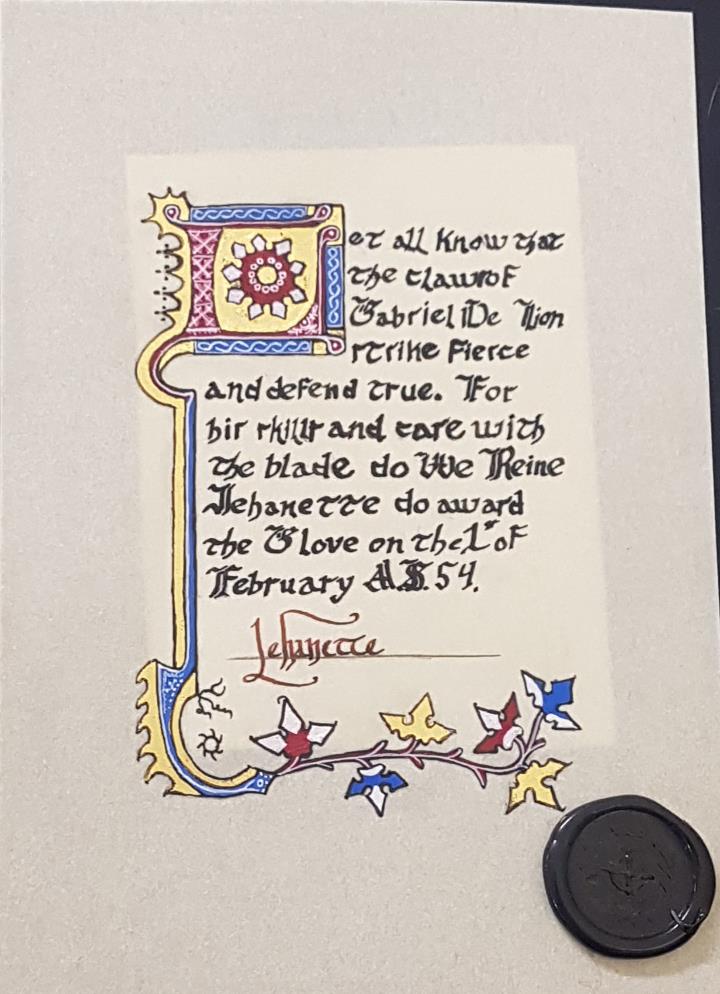 Let all know that
the claws of
Gabriel De Lion
strike fierce
and defend true. For
his skills and care with
the blade do We Reine
Jehanette do award
the Glove on the 1st of
February A.S. 54.
Jehanette